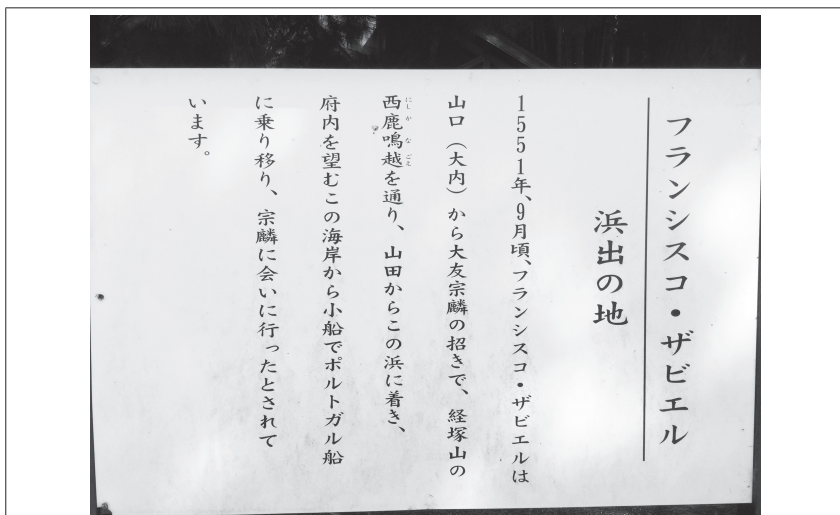 フランシスコ・ザビエル
浜出の地
1551年、9月頃、フランシスコ・ザビエルは
山口（大内）から大友宗麟の招きで、経塚山の
西鹿鳴越を通り、山田からこの浜に着き、
にしかなごえ
府内を望むこの海岸から小船でポルトガル船
に乗り移り、宗麟に会いに行ったとされて
います。